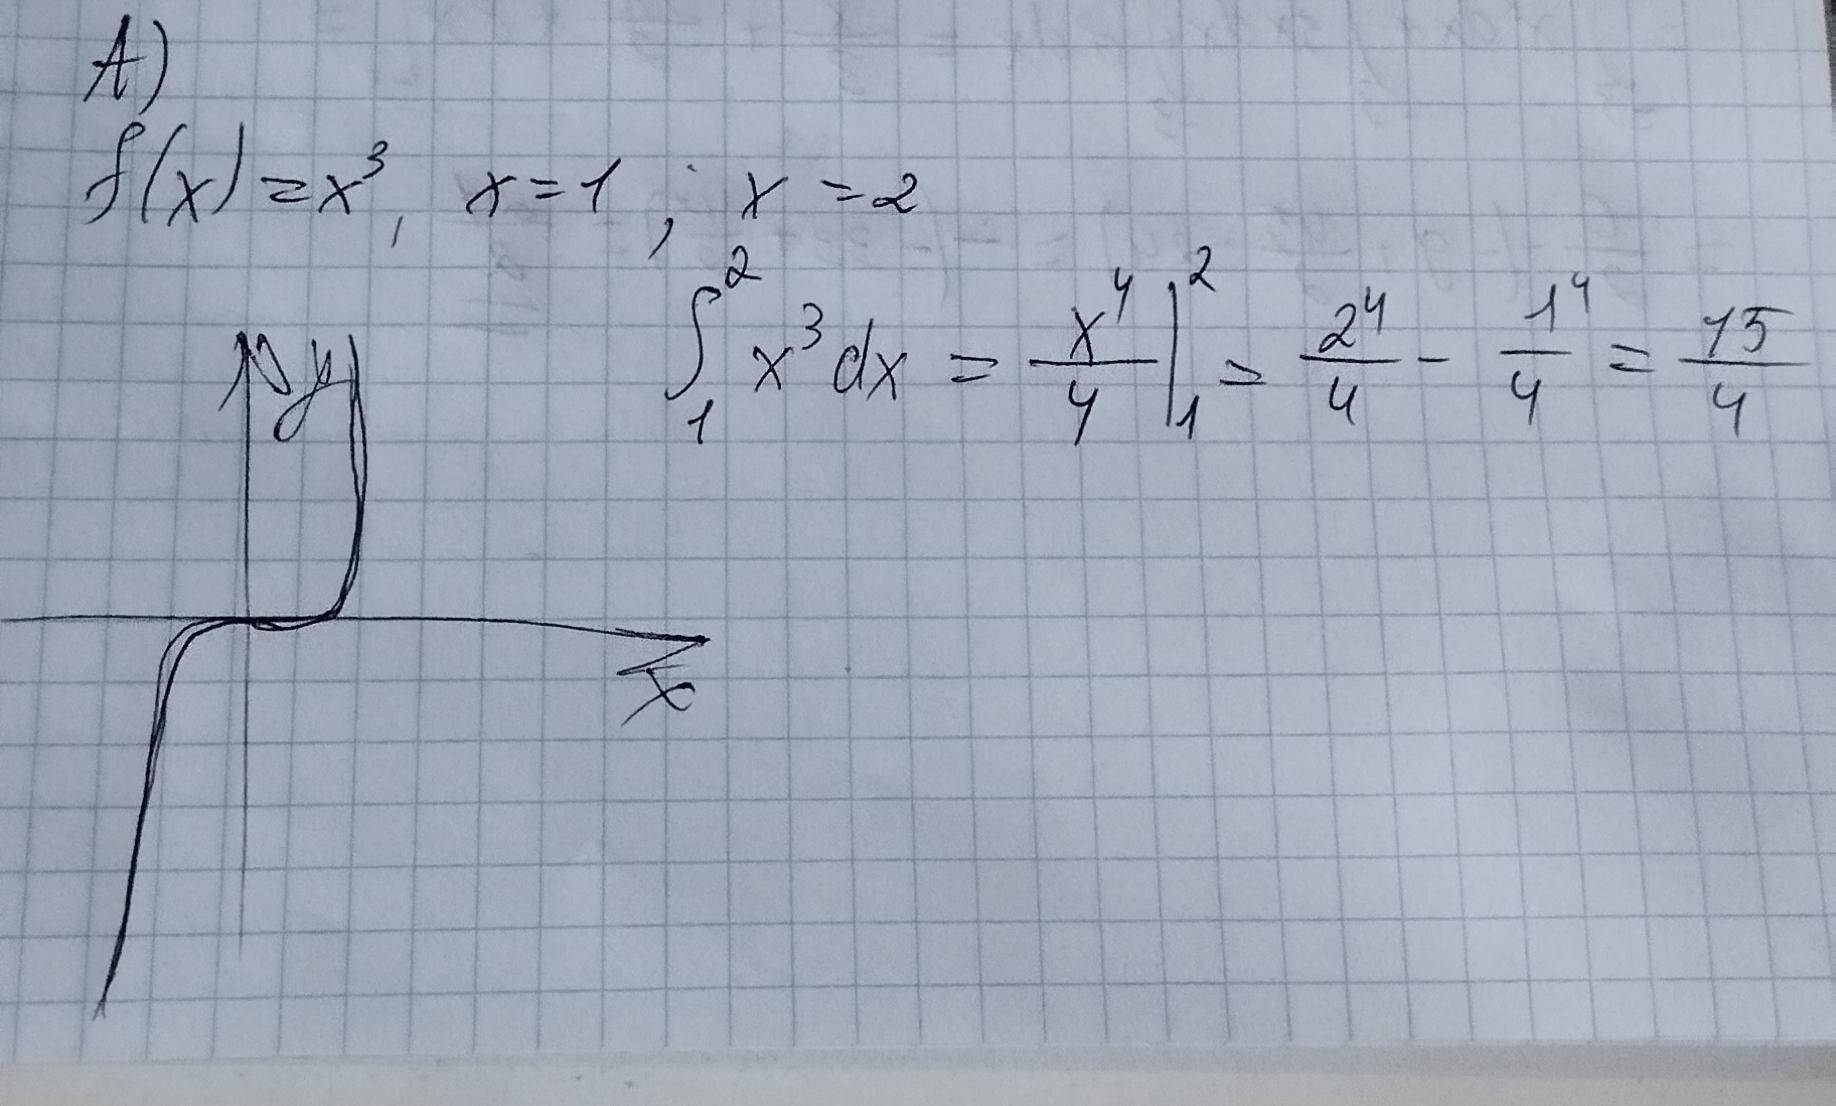 A)
f(x)=x³, x=1, x=2
∫₁² x³dx = x⁴/4 |₁² = 2⁴/4 - 1⁴/4 = 15/4
y
x